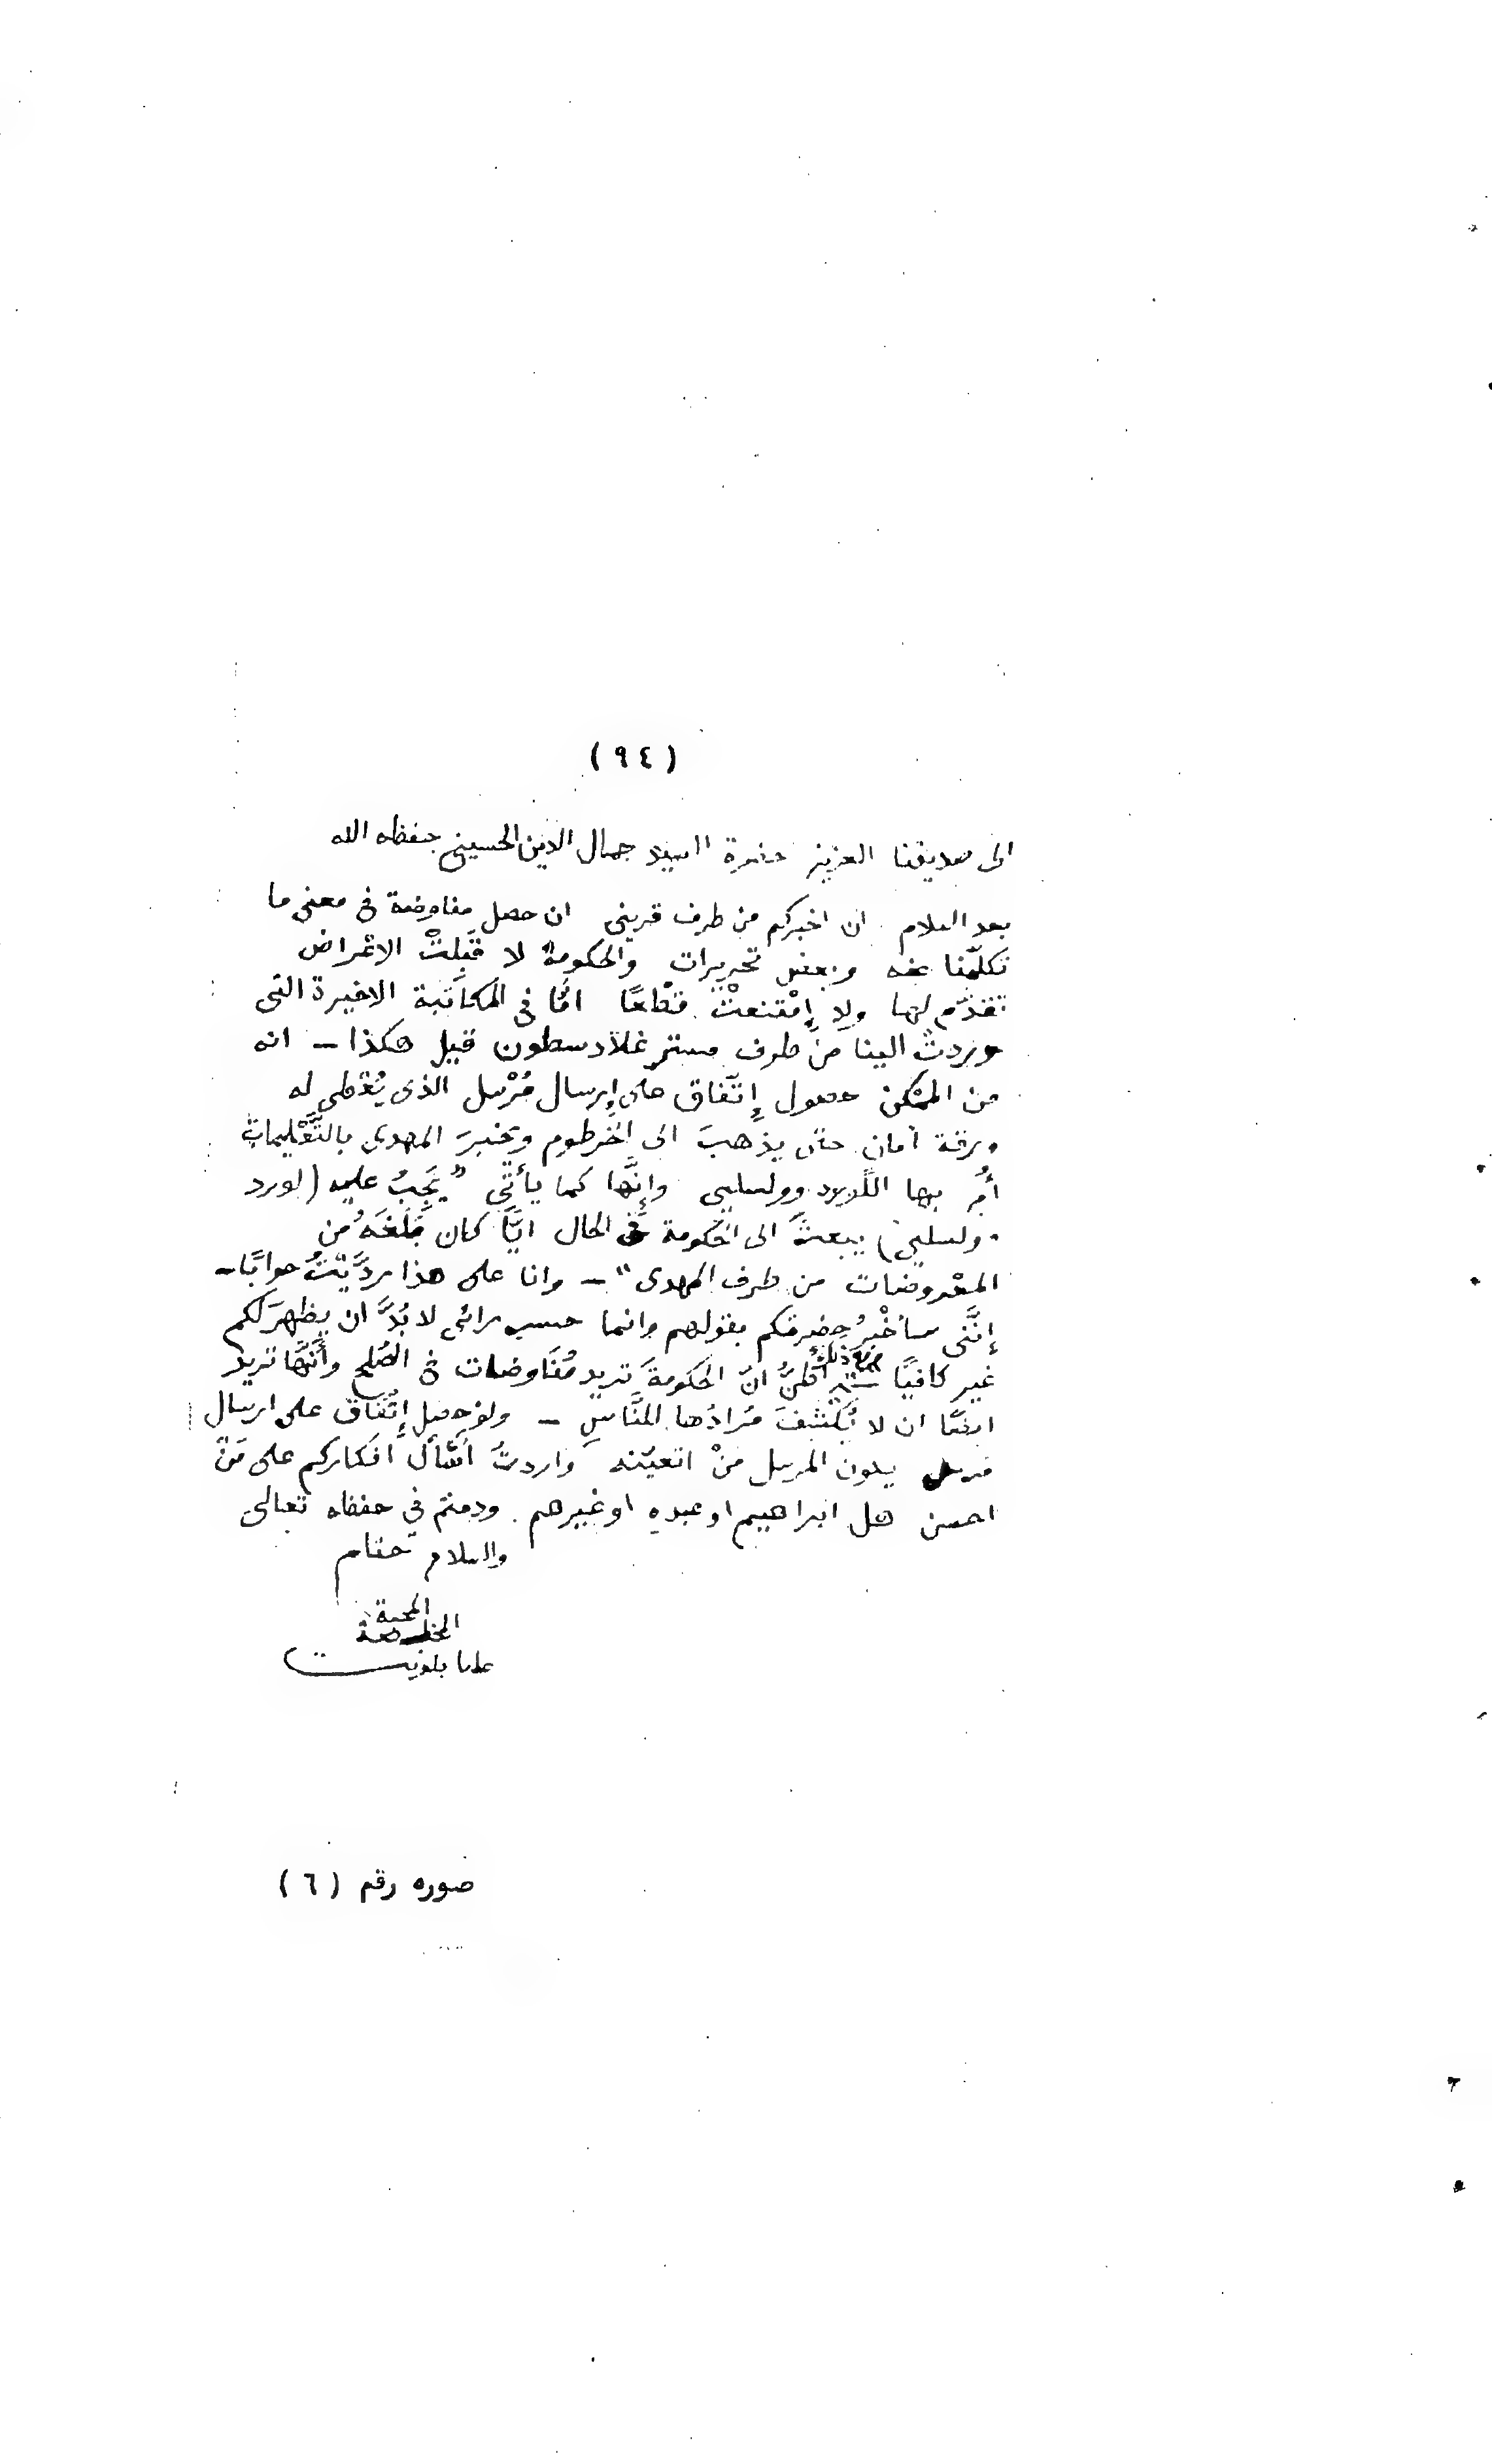 (٩٤)
الى صديقنا العزيز حضرة السيد جمال الدين الحسينى حفظه الله
بعد السلام ان اخبركم من طرف قرينى ان حصل مفاوضة فى معنى ما
تكلّمنا عنه وبعض تحريرات والحكومة لا قَبِلتْ الاغراض
تقدّم لها ولا إِمْتنعتْ قطْعًا امّا فى المكاتَبة الاخيرة التى
وردتْ الينا من طرف مستر غلادسطون قيل هكذا – انه
من الممكن حصول إِتّفاق على إِرسال مُرْسل الذى يُعْطى له
ورقة أمان حتى يذهبَ الى الخرطوم ويخبرَ المهدى بالتَّعْليماتِ
أُمِرَ بها اللّورد وولسلي وإِنَّها كما يأتى " يَجِبُ عليه (لورد
ولسلي) يبعثَ الى الحكومة فى الحال ايًّا كان بَلَغَهُ من
المعْروضات من طرف المهدى" – وانا على هذا ردَّيْتُ جوابًا –
إِنَّنى سأُخْبِرُ حضرتكم بقولهم وانما حسب رائى لا بُدَّ ان يظهرَ لكم
غير كافيًا ومع ذلك أظنُّ انّ الحكومةَ تريد مُفَاوضات فى الصُلح وأَنَّها تريد
ايضًا ان لا تُكْشَفَ مُرادُها للنَّاسِ – ولو حصل إِتّفاق على ارسال
مرسل يكون المرسل منْ اتعيّنه واردتُ أَسْأَل افكاركم على مَنْ
احسن هل ابراهيم او عبده او غيرهم. ودمتم فى حفظه تعالى
والسلام ختام
المحبة
المخلصة
عانا بلونيت
صوره رقم (٦)